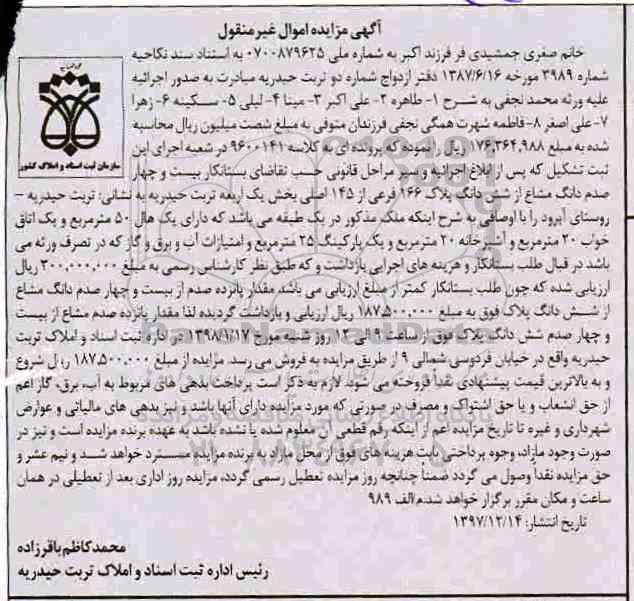 آگهی مزایده اموال غیر منقول
خانم صغری جمشیدی فر فرزند اکبر به شماره ملی ۰۷۰۰۸۷۹۶۲۵ به استناد سند نکاحیه
شماره ۳۹۸۹ مورخه ۱۳۸۷/۶/۱۶ دفتر ازدواج شماره دو تربت حیدریه مبادرت به صدور اجرائیه
علیه ورثه محمد نجفی به شرح ۱- طاهره ۲- علی اکبر ۳- مینا ۴- لیلی ۵- سکینه ۶- زهرا
۷- علی اصغر ۸- فاطمه شهرت همگی نجفی فرزندان متوفی به مبلغ شصت میلیون ریال محاسبه
شده به مبلغ ۱۷۶,۳۶۴,۹۸۸ ریال را نموده که پرونده ای به کلاسه ۹۶۰۰۱۴۱ در شعبه اجرای این
ثبت تشکیل که پس از ابلاغ اجرائیه و سیر مراحل قانونی حسب تقاضای بستانکار بیست و چهار
سازمان ثبت اسناد و املاک کشور
صدم دانگ مشاع از شش دانگ پلاک ۱۶۶ فرعی از ۱۴۵ اصلی بخش یک اربعه تربت حیدریه به نشانی: تربت حیدریه –
روستای آبرود را با اوصافی به شرح اینکه ملک مذکور در یک طبقه می باشد که دارای یک هال ۵۰ مترمربع و یک اتاق
خواب ۲۰ مترمربع و آشپزخانه ۲۰ مترمربع و یک پارکینگ ۲۵ مترمربع و امتیازات آب و برق و گاز که در تصرف ورثه می
باشد در قبال طلب بستانکار و هزینه های اجرایی بازداشت و که طبق نظر کارشناس رسمی به مبلغ ۳۰۰,۰۰۰,۰۰۰ ریال
ارزیابی شده که چون طلب بستانکار کمتر از مبلغ ارزیابی می باشد مقدار پانزده صدم از بیست و چهار صدم دانگ مشاع
از شش دانگ پلاک فوق به مبلغ ۱۸۷,۵۰۰,۰۰۰ ریال ارزیابی و بازداشت گردیده لذا مقدار پانزده صدم مشاع از بیست
و چهار صدم شش دانگ پلاک فوق از ساعت ۹ الی ۱۲ روز شنبه مورخ ۱۳۹۸/۱/۱۷ در اداره ثبت اسناد و املاک تربت
حیدریه واقع در خیابان فردوسی شمالی ۹ از طریق مزایده به فروش می رسد. مزایده از مبلغ ۱۸۷,۵۰۰,۰۰۰ ریال شروع
و به بالاترین قیمت پیشنهادی نقداً فروخته می شود. لازم به ذکر است پرداخت بدهی های مربوط به آب، برق، گاز اعم
از حق انشعاب و یا حق اشتراک و مصرف در صورتی که مورد مزایده دارای آنها باشد و نیز بدهی های مالیاتی و عوارض
شهرداری و غیره تا تاریخ مزایده اعم از اینکه رقم قطعی آن معلوم شده یا نشده باشد به عهده برنده مزایده است و نیز در
صورت وجود مازاد، وجوه پرداختی بابت هزینه های فوق از محل مازاد به برنده مزایده مسترد خواهد شد و نیم عشر و
حق مزایده نقداً وصول می گردد ضمناً چنانچه روز مزایده تعطیل رسمی گردد، مزایده روز اداری بعد از تعطیلی در همان
ساعت و مکان مقرر برگزار خواهد شد.م/الف ۹۸۹
تاریخ انتشار: ۱۳۹۷/۱۲/۱۴
محمدکاظم باقرزاده
رئیس اداره ثبت اسناد و املاک تربت حیدریه